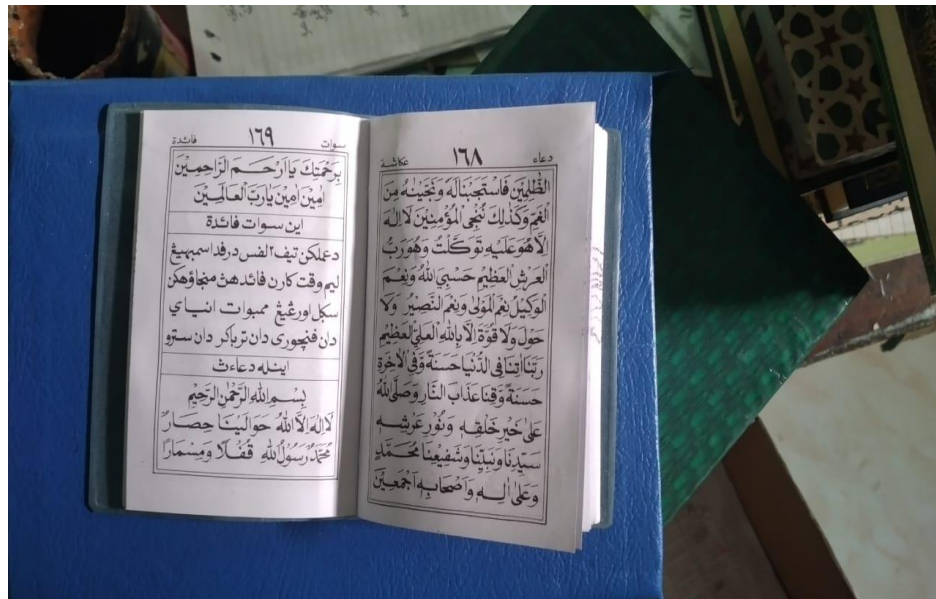 دعاء ١٦٨ عكاشة
الظّٰلِمِيْنَ فَاسْتَجَبْنَالَهٗ وَنَجَّيْنٰهُ مِنَ
الْغَمِّ وَكَذٰلِكَ نُنْجِي الْمُؤْمِنِيْنَ لَااِلٰهَ
اِلَّاهُوَ عَلَيْهِ تَوَكَّلْتُ وَهُوَرَبُّ
الْعَرْشِ الْعَظِيْمِ حَسْبِيَ اللّٰهُ وَنِعْمَ
الْوَكِيْلُ نِعْمَ الْمَوْلٰى وَنِعْمَ النَّصِيْرُ وَلَا
حَوْلَ وَلَا قُوَّةَ اِلَّا بِاللّٰهِ الْعَلِيِّ الْعَظِيْمِ
رَبَّنَا اٰتِنَا فِى الدُّنْيَا حَسَنَةً وَّفِى الْاٰخِرَةِ
حَسَنَةً وَّقِنَا عَذَابَ النَّارِ وَصَلَّى اللّٰهُ
عَلٰى خَيْرِ خَلْقِهٖ وَنُوْرِ عَرْشِهٖ
سَيِّدِنَا وَنَبِيِّنَا وَشَفِيْعِنَا مُحَمَّدٍ
وَعَلٰى اٰلِهٖ وَاَصْحَابِهٖ اَجْمَعِيْنَ
سوات ١٦٩ فائدة
بِرَحْمَتِكَ يَا اَرْحَمَ الرَّاحِمِيْنَ
اٰمِيْنَ اٰمِيْنَ يَارَبَّ الْعَالَمِيْنَ
اين سوات فائدة
دعملكن تيف٢ لفس درفد اسمبهيڠ
ليم وقت كارن فائدهڽ منجاؤهكن
سكل اورڠيڠ ممبوات انياي
دان فنچوري دان ترباكر دان سترو
اينله دعاءڽ
بِسْمِ اللّٰهِ الرَّحْمٰنِ الرَّحِيْمِ
لَااِلٰهَ اِلَّا اللّٰهُ حَوَالَيْنَا حِصَارٌ
مُحَمَّدٌ رَّسُوْلُ اللّٰهِ قُفْلًا وَمِسْمَارًا